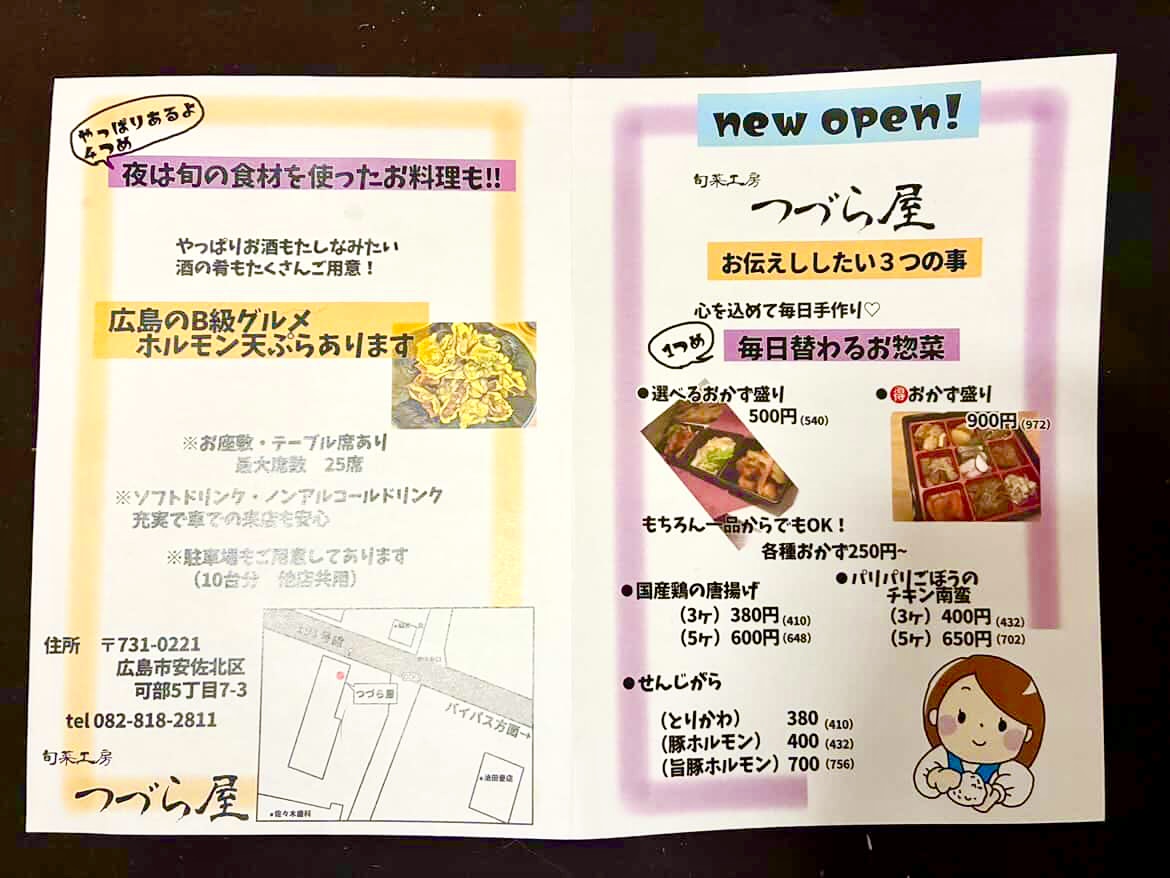 やっぱりあるよ
4つめ
夜は旬の食材を使ったお料理も!!
やっぱりお酒もたしなみたい
酒の肴もたくさんご用意！
広島のB級グルメ
ホルモン天ぷらあります
※お座敷・テーブル席あり
最大席数 25席
※ソフトドリンク・ノンアルコールドリンク
充実で車での来店も安心
※駐車場もご用意してあります
（10台分 他店共用）
住所 〒731-0221
広島市安佐北区
可部5丁目7-3
tel 082-818-2811
旬菜工房
つづら屋
つづら屋
バイパス方面→
●池田畳店
●佐々木歯科
new open!
旬菜工房
つづら屋
お伝えしたい３つの事
心を込めて毎日手作り♡
1つめ
毎日替わるお惣菜
●選べるおかず盛り
500円(540)
●得おかず盛り
900円(972)
もちろん一品からでもOK！
各種おかず250円~
●国産鶏の唐揚げ
（3ヶ）380円(410)
（5ヶ）600円(648)
●パリパリごぼうの
チキン南蛮
（3ヶ）400円(432)
（5ヶ）650円(702)
●せんじがら
（とりかわ） 380 (410)
（豚ホルモン） 400 (432)
（旨豚ホルモン）700 (756)